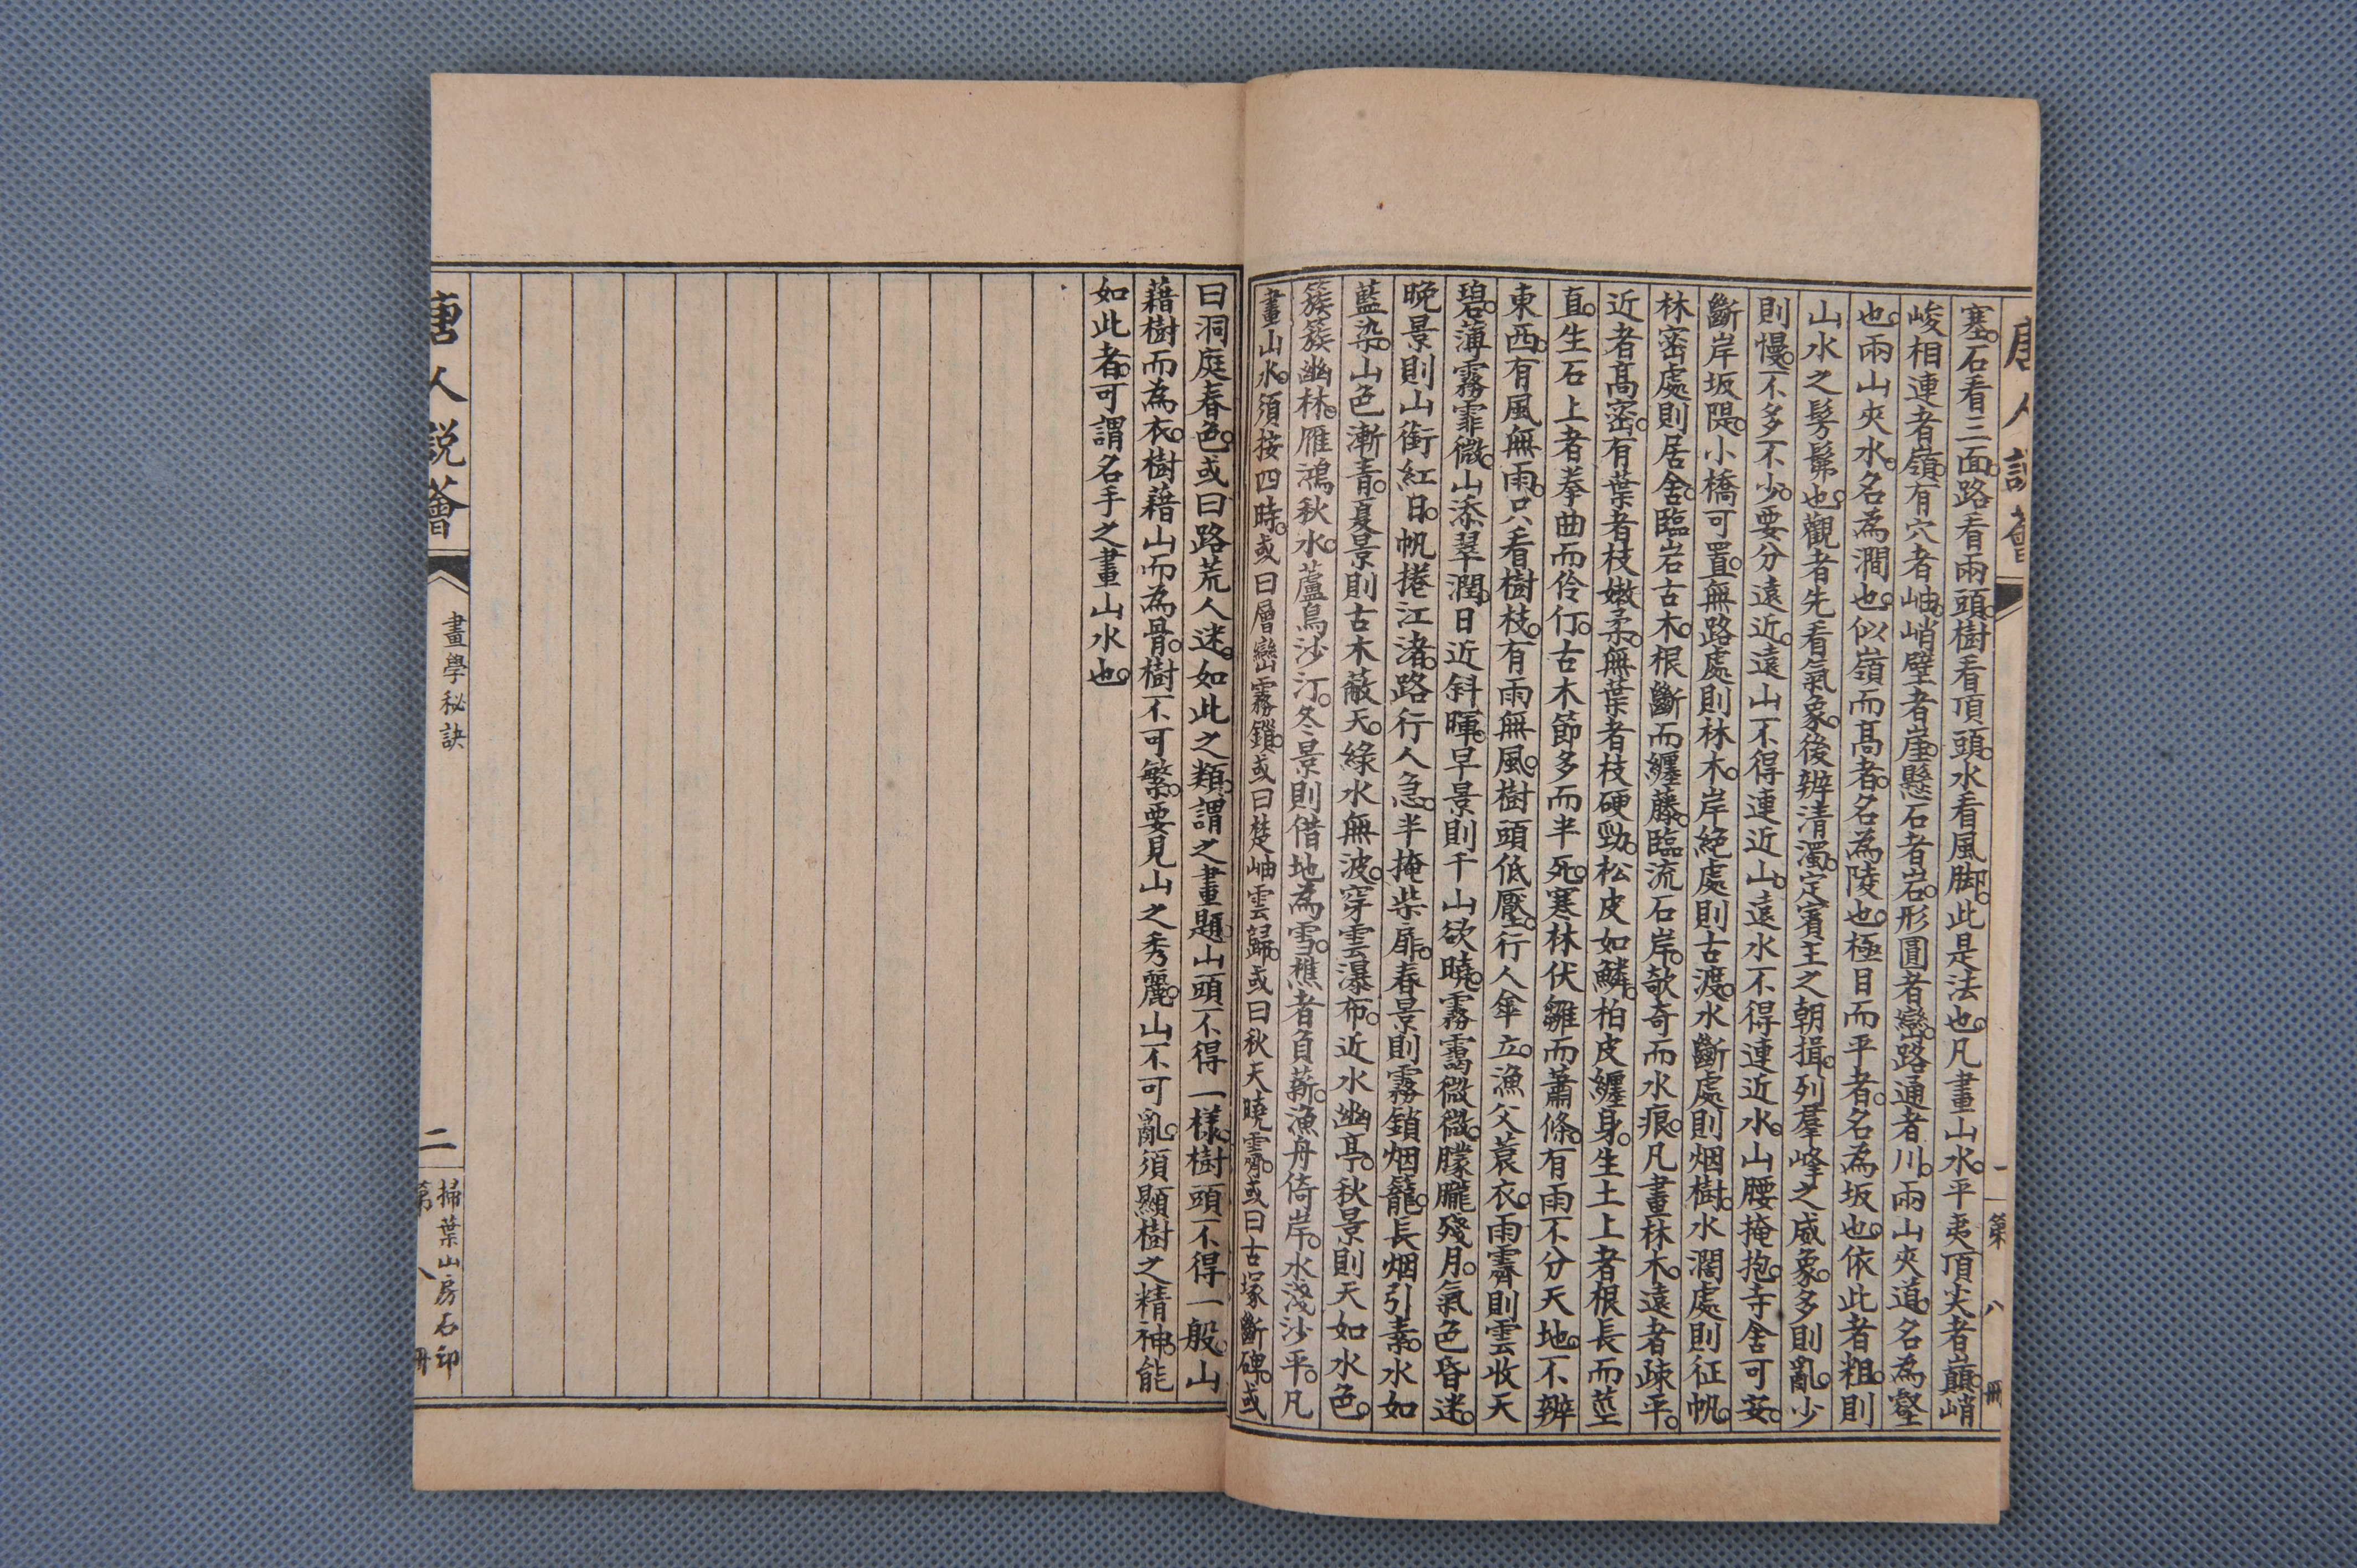 唐人說薈
一
第八冊
塞。石看三面。路看兩頭。樹看頂頭。水看風脚。此是法也。凡畫山水。平夷頂尖者巔。峭
峻相連者嶺。有穴者岫。峭壁者崖。懸石者岩。形圓者巒。路通者川。兩山夾道。名為壑
也。兩山夾水。名為澗也。似嶺而高者。名為陵也。極目而平者。名為坂也。依此者。粗則
山水之髣髴也。觀者先看氣象。後辨清濁。定賓主之朝揖。列羣峰之威象。多則亂。少
則慢。不多不少。要分遠近。遠山不得連近山。遠水不得連近水。山腰掩抱。寺舍可安。
斷岸坂隄。小橋可置。無路處則林木。岸絕處則古渡。水斷處則烟樹。水濶處則征帆。
林密處則居舍。臨岩古木。根斷而纏藤。臨流石岸。欹奇而水痕。凡畫林木。遠者疎平。
近者高密。有葉者枝嫩柔。無葉者枝硬勁。松皮如鱗。柏皮纏身。生土上者根長而莖
直。生石上者拳曲而伶仃。古木節多而半死。寒林伏雛而蕭條。有雨不分天地。不辨
東西。有風無雨。只看樹枝。有雨無風。樹頭低壓。行人傘立。漁父蓑衣。雨霽則雲收天
碧。薄霧霏微。山添翠潤。日近斜暉。早景則千山欲曉。霧靄微微。朦朧殘月。氣色昏迷。
晚景則山銜紅日。帆捲江渚。路行人急。半掩柴扉。春景則霧鎖烟籠。長烟引素。水如
藍染。山色漸青。夏景則古木蔽天。綠水無波。穿雲瀑布。近水幽亭。秋景則天如水色。
簇簇幽林。雁鴻秋水。蘆鳥沙汀。冬景則借地為雪。樵者負薪。漁舟倚岸。水淺沙平。凡
畫山水。須按四時。或曰層巒霧鎖。或曰楚岫雲歸。或曰秋天曉霽。或曰古塚斷碑。或
曰洞庭春色。或曰路荒人迷。如此之類。謂之畫題。山頭不得一樣。樹頭不得一般。山
藉樹而為衣。樹藉山而為骨。樹不可繁。要見山之秀麗。山不可亂。須顯樹之精神。能
如此者。可謂名手之畫山水也。
唐人說薈
畫學秘訣
二
掃葉山房石印
第八冊